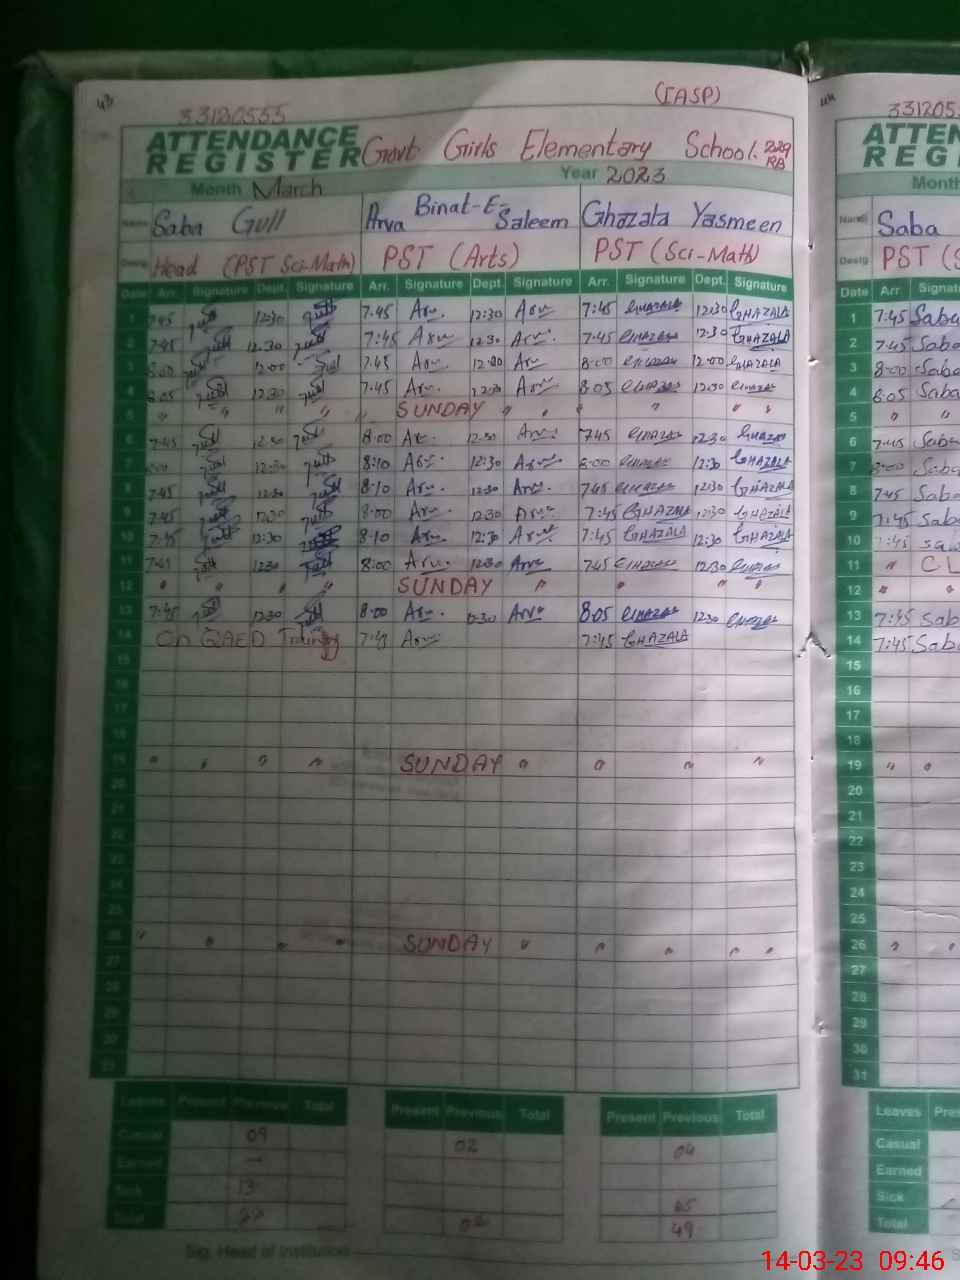 43
(IASP)
33120555
ATTENDANCE REGISTER Govt Girls Elementary School. 229 RB
Month March Year 2023
Name Saba Gull Arva Binat-E-Saleem Ghazala Yasmeen
Desig Head (PST Sci-Math) PST (Arts) PST (Sci-Math)
Date Arr. Signature Dept. Signature Arr. Signature Dept Signature Arr. Signature Dept. Signature
1 7:45 12:30 7.45 Arv. 12:30 Arv 7:45 GHAZALA 12:30 GHAZALA
2 7:45 12:30 7:45 Arv 12:30 Arv. 7:45 GHAZALA 12:30 GHAZALA
3 8:00 12:00 7.45 Arv. 12:00 Arv 8:00 GHAZALA 12:00 GHAZALA
4 8:05 12:30 7.45 Arv. 12:30 Arv 8:05 GHAZALA 12:30 GHAZALA
5 " " " " " SUNDAY " " " " " "
6 7:45 12:30 8:00 Arv. 12:30 Arv. 7:45 GHAZALA 12:30 GHAZALA
7 8:00 12:30 8:10 Arv. 12:30 Arv 8:00 GHAZALA 12:30 GHAZALA
8 7:45 12:30 8:10 Arv. 12:30 Arv. 7:45 GHAZALA 12:30 GHAZALA
9 7:45 12:30 8:00 Arv. 12:30 Arv 7:45 GHAZALA 12:30 GHAZALA
10 7:45 12:30 8:10 Arv. 12:30 Arv 7:45 GHAZALA 12:30 GHAZALA
11 12:30 8:00 Arv. 12:30 Arv 7:45 GHAZALA 12:30 GHAZALA
12 " " " " SUNDAY " " " "
13 7:45 12:30 8:00 Arv. 12:30 Arv 8:05 GHAZALA 12:30 GHAZALA
14 On QAED Training Arv 7:45 GHAZALA
15
16
17
18
19 " " " " SUNDAY " " " "
20
21
22
23
24
25
26 " " " " SUNDAY " " " " "
27
28
29
30
31
Leaves Present Previous Total Present Previous Total Present Previous Total
Casual 09 02 04
Earned —
Sick 13 45
Total 22 02 49
Sig. Head of Institution
44
331205
ATTEN
REG
Month
Name Saba
Desig PST (S
Date Arr. Signatu
1 7:45 Saba
2 7:45 Saba
3 8:00 Saba
4 8:05 Saba
5 " "
6 7:45 Saba
7 8:00 Saba
8 7:45 Saba
9 7:45 Saba
10 7:45 Saba
11 " C L
12 " "
13 7:45 Sab
14 7:45 Sab
15
16
17
18
19 " "
20
21
22
23
24
25
26 " "
27
28
29
30
31
Leaves Pres
Casual
Earned
Sick
Total
14-03-23 09:46